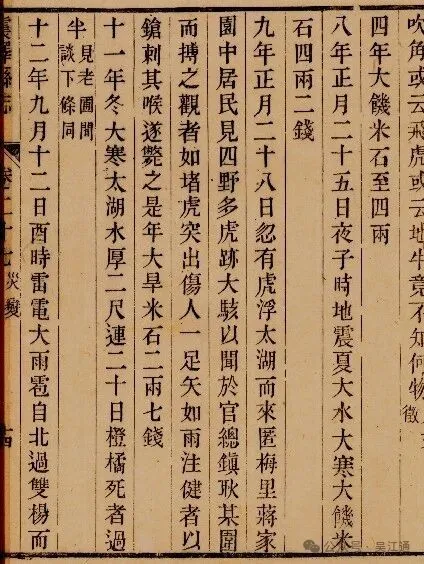 吹角或云飛虎或云地牛竟不知何物徵
四年大饑米石至四兩
八年正月二十五日夜子時地震夏大水大寒大饑米
石四兩二錢
九年正月二十八日忽有虎浮太湖而來匿梅里蔣家
園中居民見四野多虎跡大駭以聞於官總鎮耿某圍
而搏之觀者如堵虎突出傷人一足矢如雨注健者以
鎗刺其喉遂斃之是年大旱米石二兩七錢
十一年冬大寒太湖水厚二尺連二十日橙橘死者過
半見老圃閒
談下條同
十二年九月十二日酉時雷電大雨雹自北過雙楊而
震澤縣志 卷二十七 災變
公众号·吴江通